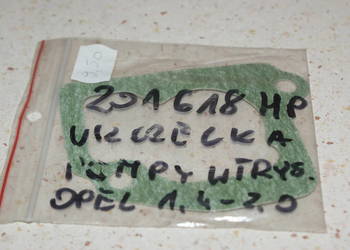 9,50
201618 HP
USZCZELKA
POMPY WTRYS.
OPEL 1,4-2,0